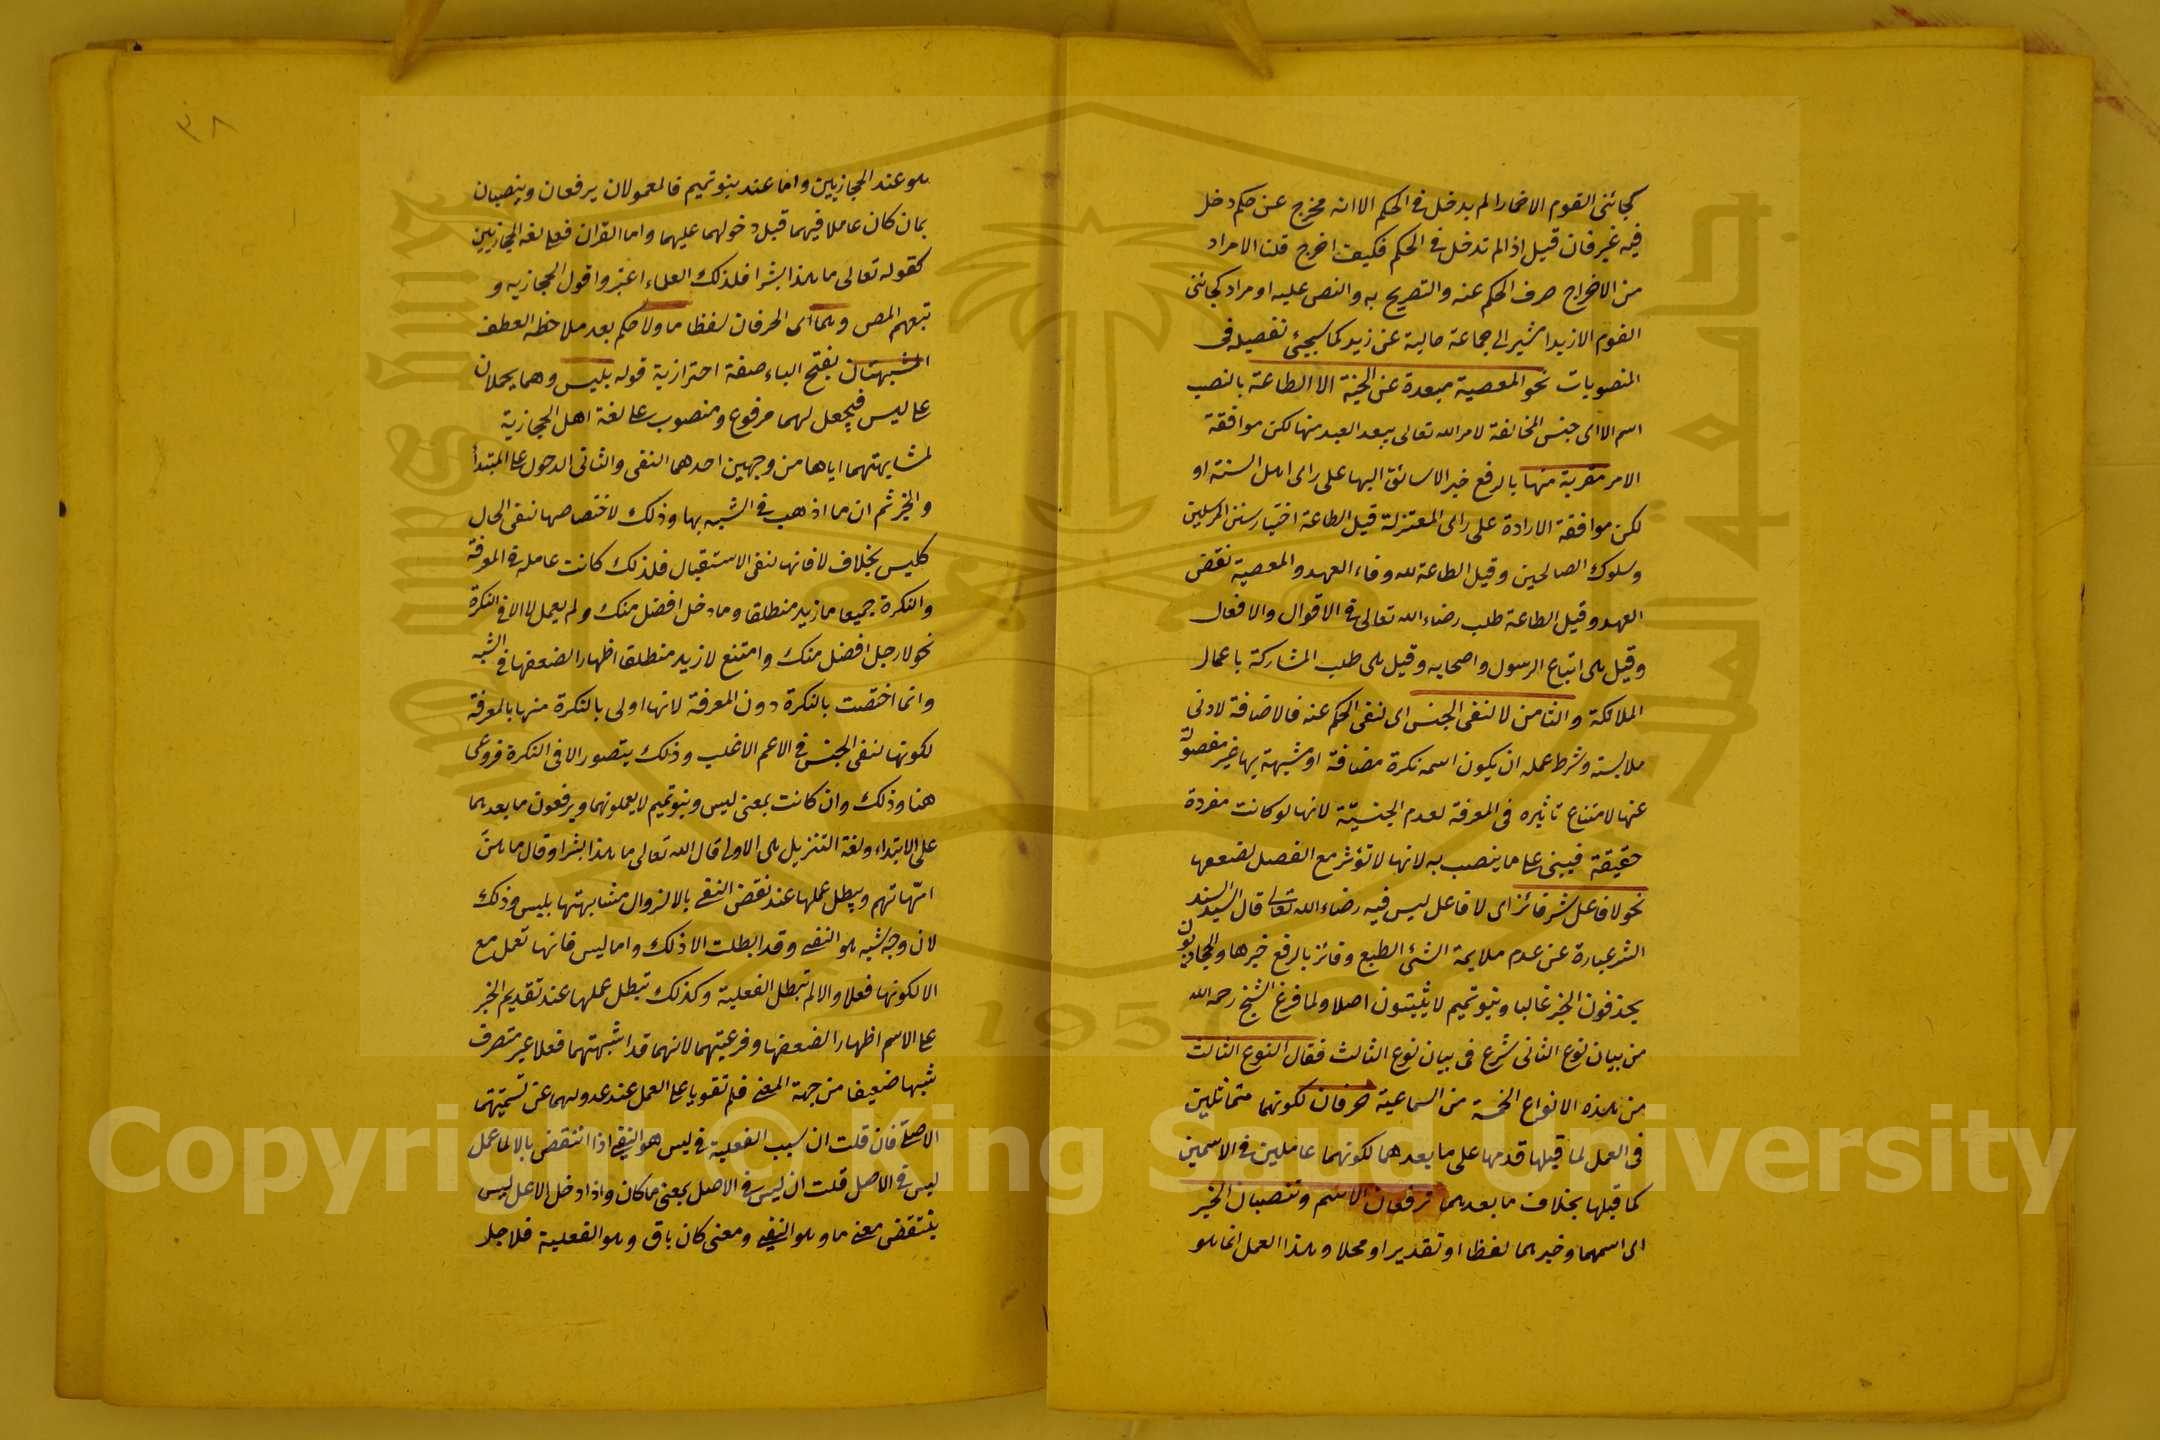 كجائنى القوم الا حمارا لم يدخل فى الحكم الا انه مخرج عن حكم دخل
فيه غير فان قيل اذا لم تدخل فى الحكم فكيف اخرج قلنا الامراد
من الاخراج صرف الحكم عنه والتصريح به والنص عليه او مراد كجائنى
القوم الا زيدا مشيرا لى جماعة خالية عن زيد كما سيجئ تفصيله فى
المنصوبات نحو المعصية مبعدة عن الجنة الا الطاعة بالنصب
اسم الا اى جنس المخالفة لامر الله تعالى يبعد العبد منها لكن موافقة
الامر مقربة منها بالرفع خبر الا سائق اليها على راى اهل السنة او
لكن موافقة الارادة على راى المعتزلة قيل الطاعة اختيار سنن المرسلين
وسلوك الصالحين وقيل الطاعة لله وفاء العهد والمعصية نقض
العهد وقيل الطاعة طلب رضاء الله تعالى فى الاقوال والافعال
وقيل هى اتباع الرسول واصحابه وقيل هى طلب المشاركة باعمال
الملائكة والثامن لا لنفى الجنس اى لنفى الحكم عنه فالاضافة لادنى
ملابسة وشرط عمله ان يكون اسمه نكرة مضافة او مشبهة بها غير مفصولة
عنها لامتناع تاثيره فى المعرفة لعدم الجنسيّة لانها لو كانت مفردة
حقيقة فيبنى على ما ينصب به لانها لا تؤثر مع الفصل لضعفها
نحو لا فاعل شر فائز اى لا فاعل ليس فيه رضاء الله تعالى قال السيد السند
الشر عبارة عن عدم ملايمة الشئ الطبع وفائز بالرفع خبرها والحجازيون
يحذفون الخبر غالبا وبنو تميم لا يثبتون اصلا ولما فرغ الشيخ رحمه الله
من بيان نوع الثانى شرع فى بيان نوع الثالث فقال النوع الثالث
من هذه الانواع الخمسة من السماعية حرفان لكونهما متماثلين
فى العمل لما قبلها قدمها على ما بعدهما لكونهما عاملين فى الاسمين
كما قبلها بخلاف ما بعدهما ترفعان الاسم وتنصبان الخبر
اى اسمهما وخبرهما لفظا او تقديرا او محلا وهذا العمل انما هو
٣٨
هو عند الحجازيين واما عند بنو تميم فالمعمولان يرفعان وينصبان
بمان كان عاملا فيهما قبل دخولهما عليهما واما القران فعلى لغه الحجازيين
كقوله تعالى ما هذا بشرا فلذلك العلماء اعتبروا قول الحجازيه و
تبعهم المص وهما اى الحرفان لفظا ما ولا حكم بعد ملاحظه العطف
المشبهتان بفتح الباء صفة احترازية قوله بليس وهما يحملان
على ليس فيجعل لهما مرفوع ومنصوب على لغة اهل الحجازية
لمشابهتهما اياها من وجهين احدهما النفى والثانى الدخول على المبتدأ
والخبر ثم ان ما اذهب فى الشبه بها وذلك لاختصاصها نفى الحال
كليس بخلاف لا فانها لنفى الاستقبال فلذلك كانت عاملة فى المعرفة
والنكرة جميعا ما زيد منطلقا وما دخل افضل منك ولم يعمل لا الا فى النكرة
نحو لا رجل افضل منك وامتنع لا زيد منطلقا اظهارا لضعفها فى الشبه
وانما اختصت بالنكرة دون المعرفة لانها اولى بالنكرة منها بالمعرفة
لكونها لنفى الجنس فى الاعم الاغلب وذلك يتصور الا فى النكرة فروعى
هنا وذلك وان كانت بمعنى ليس وبنو تميم لا يعملونهما ويرفعون ما بعدهما
على الابتداء ولغة التنزيل هى الاولى قال الله تعالى ما هذا بشرا وقال ما هنّ
امّهاتهم ويبطل عملها عند نقض النفى بالا لزوال مشابهتها بليس وذلك
لان وجه شبه هو النفى وقد ابطلت الا ذلك واما ليس فانها تعمل مع
الا لكونها فعلا والا لم تبطل الفعلية وكذلك تبطل عملها عند تقديم الخبر
على الاسم اظهارا لضعفها وفرعيتهما لانهما قد اشبهتهما فعلا غير متصرف
شبها ضعيفا من جهة المعنى فلم تقويا على العمل عند عدولهما عن تسميتهما
الاصلى فان قلت ان سبب الفعلية فى ليس هو النفى اذا انتقض بالا لما عمل
ليس فى الاصل قلت ان ليس فى الاصل بمعنى ما كان واذا دخل الا على ليس
ينتقض معنى ما وهو النفى ومعنى كان باق وهو الفعلية فلاجل
Copyright © King Saud University
1957